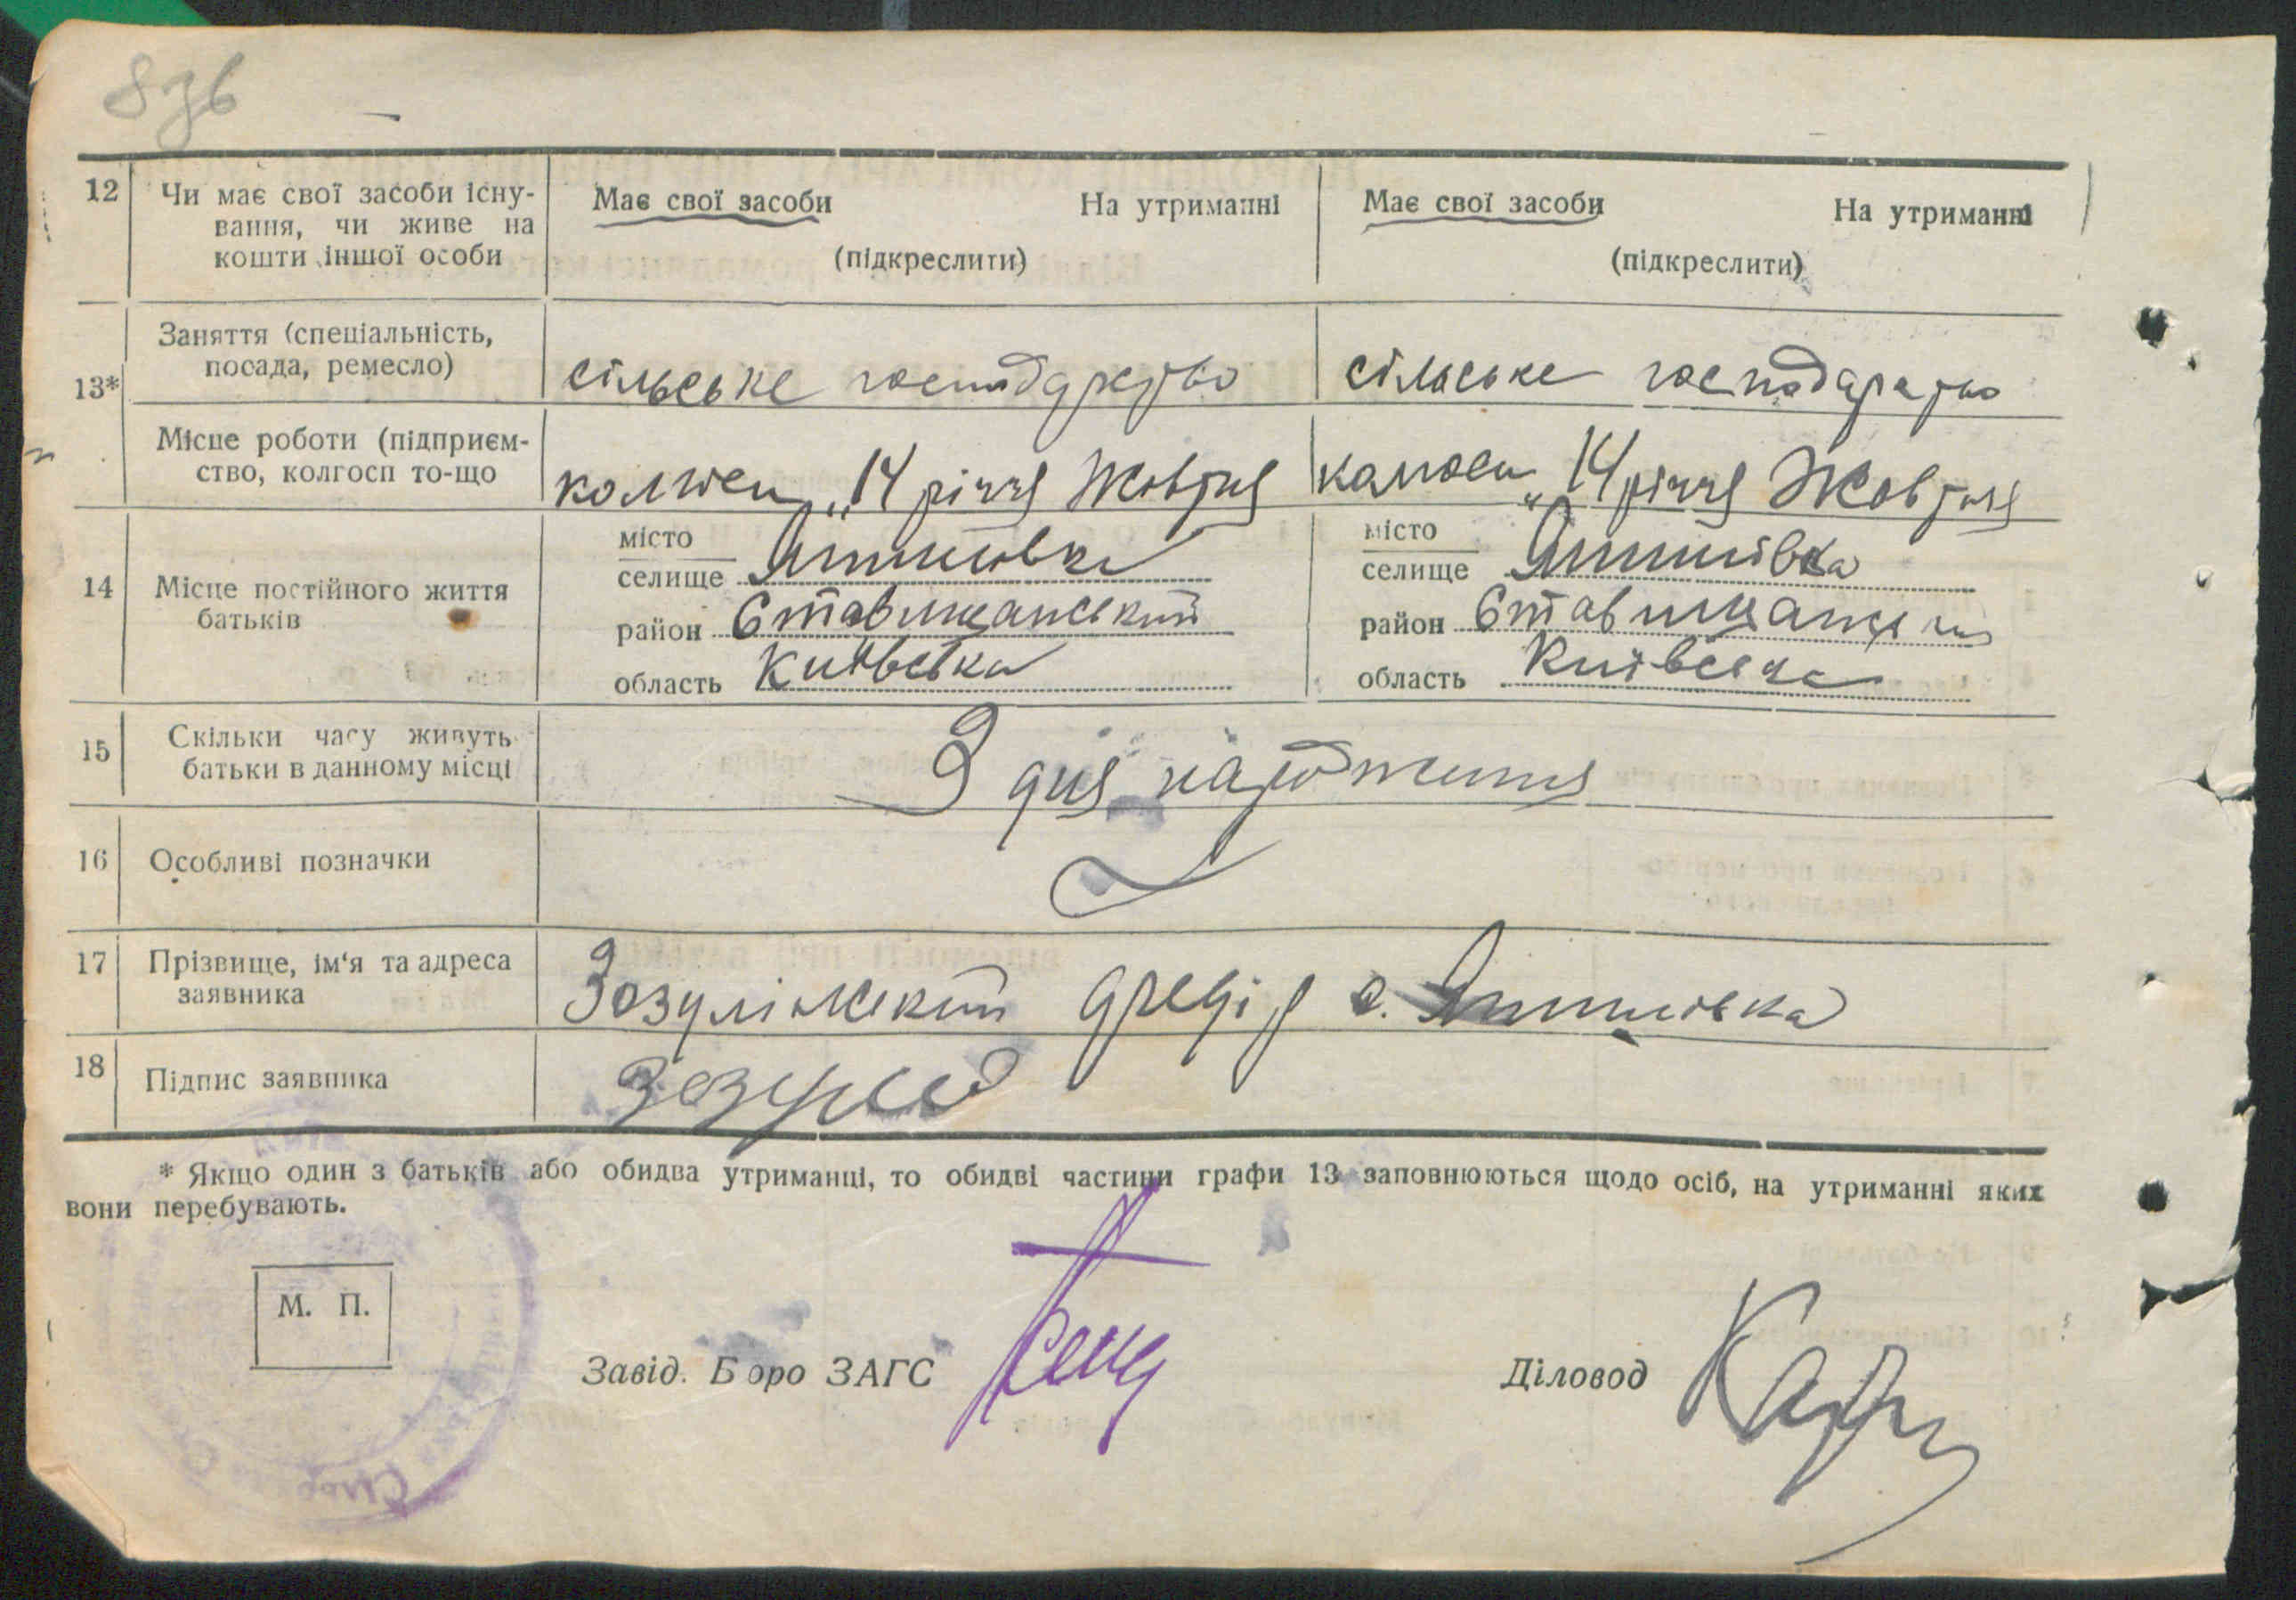 83б
12 Чи має свої засоби існу-
вання, чи живе на
кошти іншої особи
Має свої засоби На утриманні
(підкреслити)
Має свої засоби На утриманні
(підкреслити)
13*
Заняття (спеціальність,
посада, ремесло)
сільське господарство
сільське господарство
Місце роботи (підприєм-
ство, колгосп то-що
колгосп „14 річчя Жовтня
колгосп „14 річчя Жовтня
14 Місце постійного життя
батьків
місто
селище Яшинівка
район Ставищанський
область Київська
місто
селище Яшинівка
район Ставищанськ
область Київська
15 Скільки часу живуть
батьки в данному місці
З дня народження
16 Особливі позначки
17 Прізвище, ім'я та адреса
заявника
Зозулінський с.
18 Підпис заявника
* Якщо один з батьків або обидва утриманці, то обидві частини графи 13 заповнюються щодо осіб, на утриманні яких
вони перебувають.
М. П.
Завід. Бюро ЗАГС
Діловод